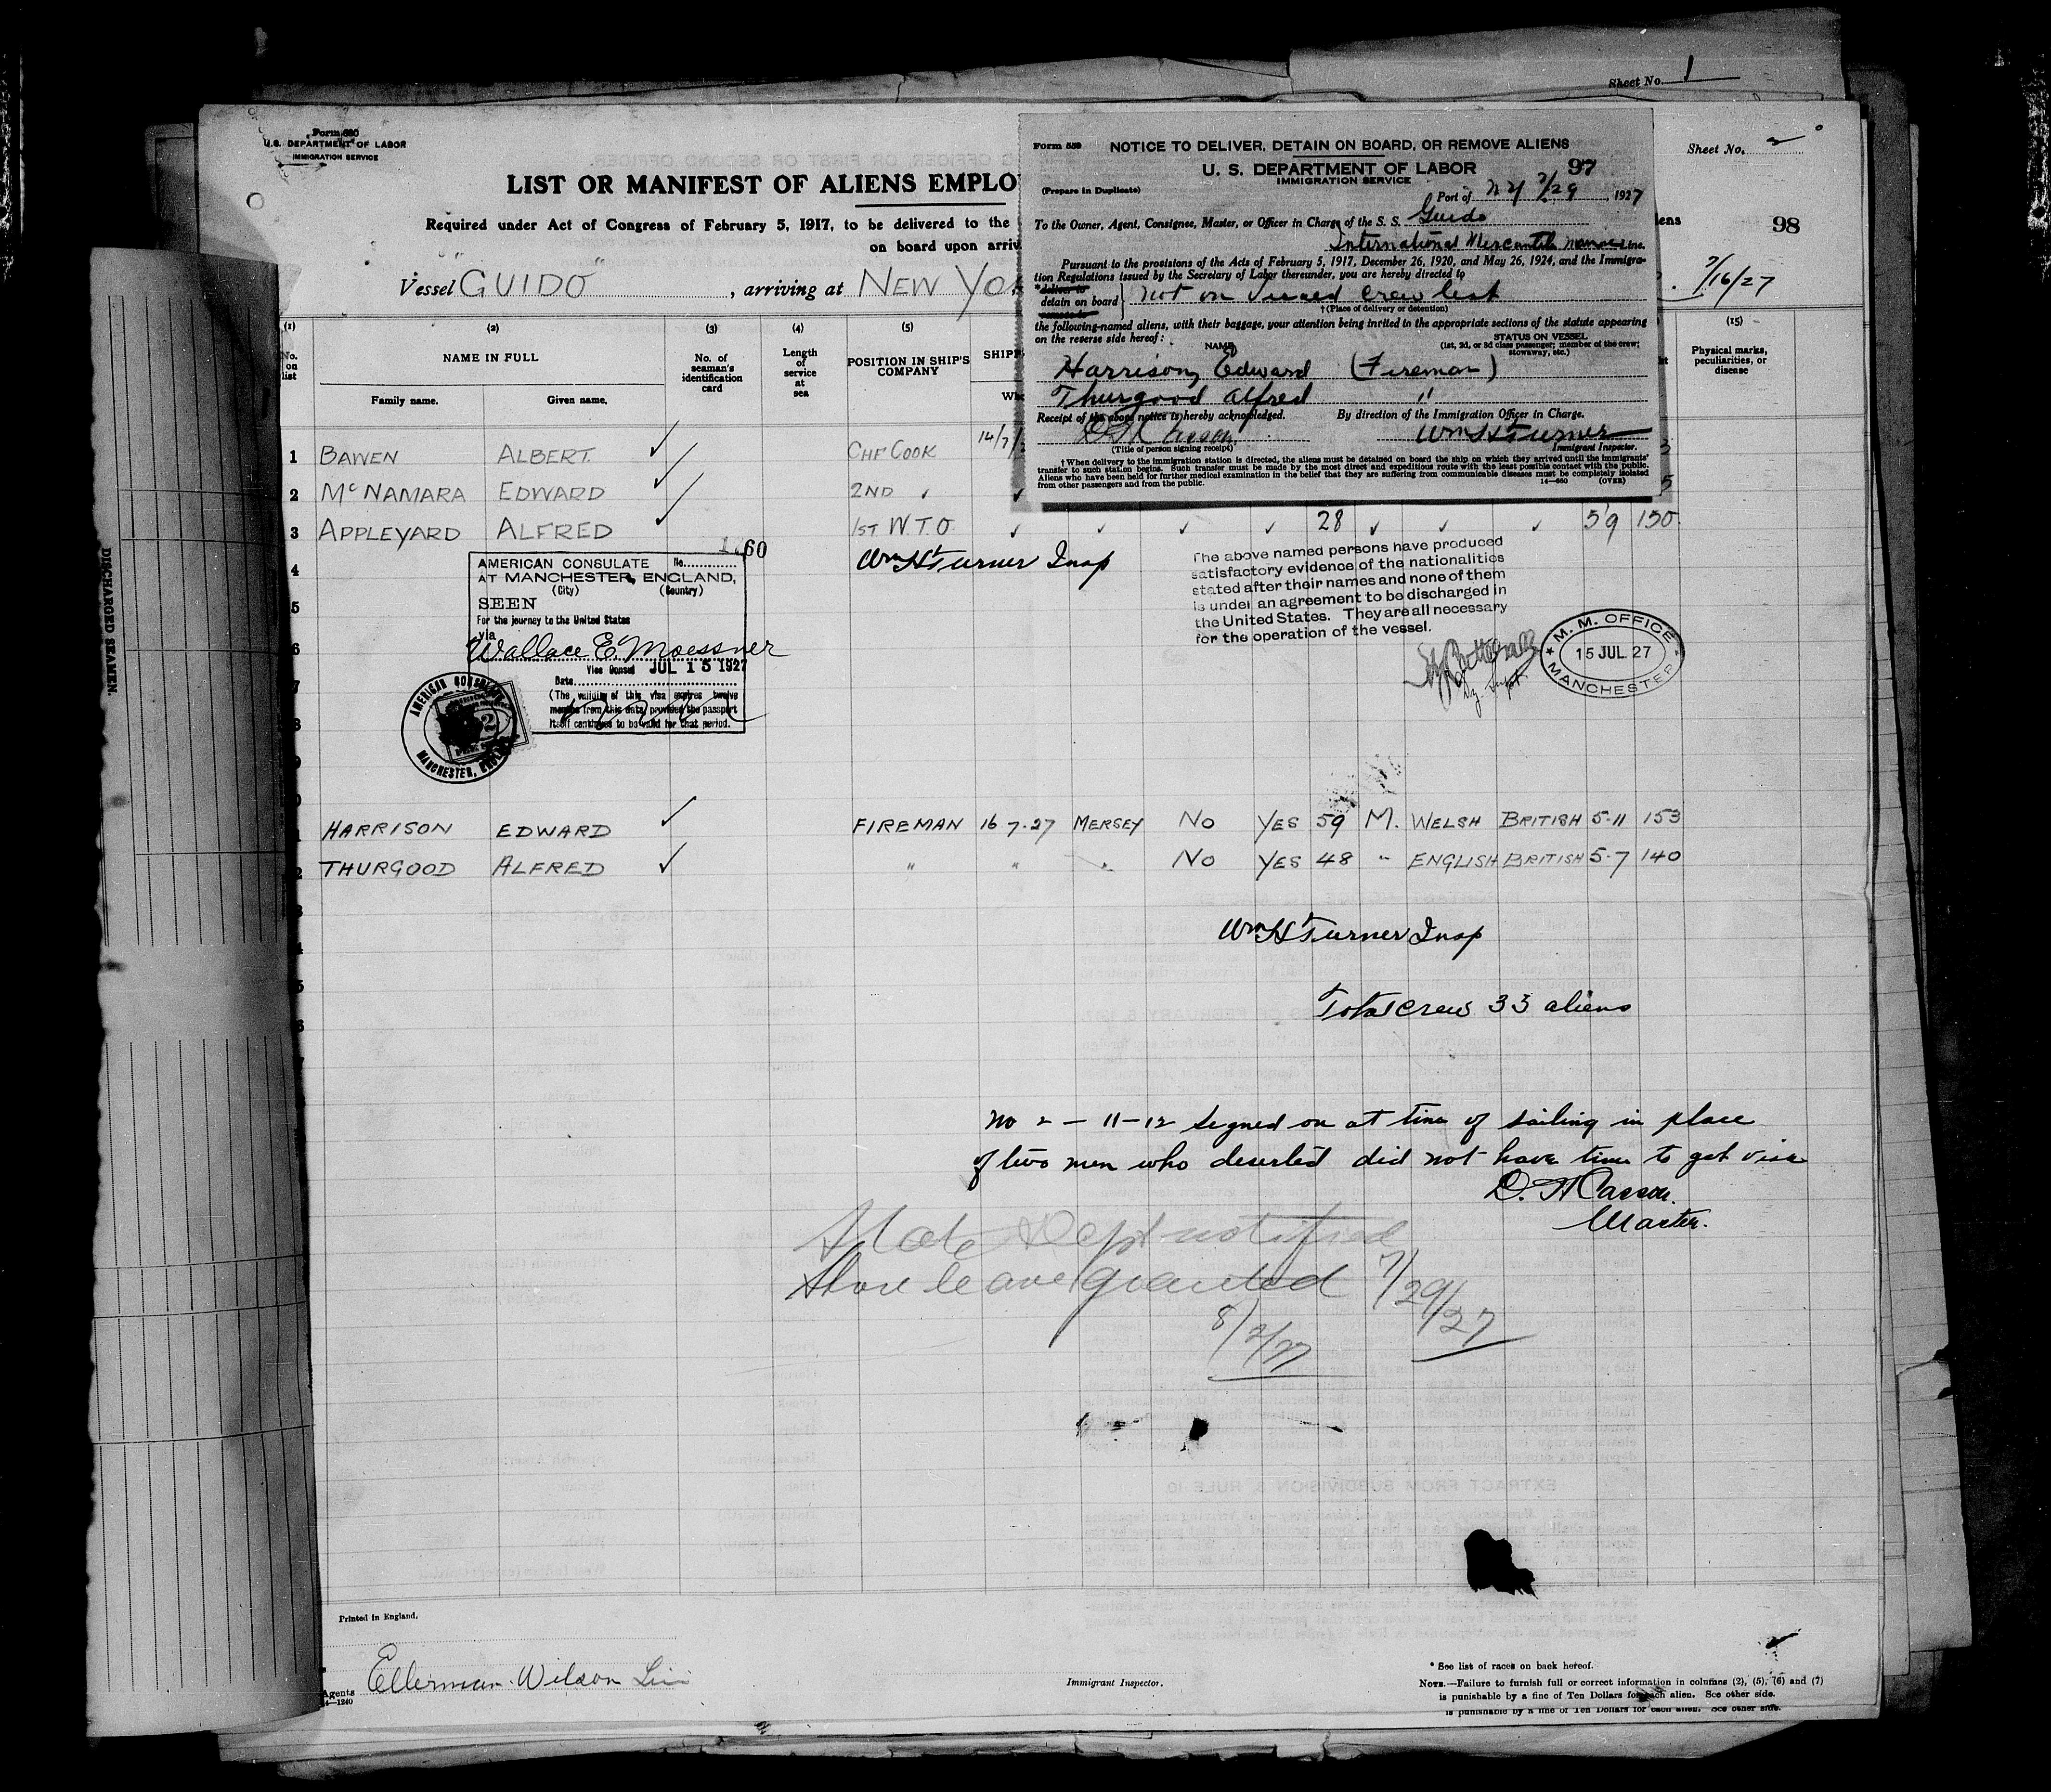 Sheet No. 1
Form 680
U.S. DEPARTMENT OF LABOR
IMMIGRATION SERVICE
Sheet No. 2
LIST OR MANIFEST OF ALIENS EMPLO
Required under Act of Congress of February 5, 1917, to be delivered to the
on board upon arriv
iens
98
Vessel "GUIDO", arriving at NEW YOR
7/16/27
Form 559 NOTICE TO DELIVER, DETAIN ON BOARD, OR REMOVE ALIENS
U. S. DEPARTMENT OF LABOR 97
IMMIGRATION SERVICE
(Prepare in Duplicate)
Port of NY 7/29, 1927
To the Owner, Agent, Consignee, Master, or Officer in Charge of the S. S. Guido
International Mercantile Marine Line.
Pursuant to the provisions of the Acts of February 5, 1917, December 26, 1920, and May 26, 1924, and the Immigra-
tion Regulations issued by the Secretary of Labor thereunder, you are hereby directed to
*deliver to
detain on board } not on visaed crew list
remove to
†(Place of delivery or detention)
the following-named aliens, with their baggage, your attention being invited in the appropriate sections of the statute appearing
on the reverse side hereof:
NAME
STATUS ON VESSEL
(1st, 2d, or 3d class passenger; member of the crew;
stowaway, etc.)
Harrison, Edward (Fireman)
Thurgood Alfred "
Receipt of the above notice is hereby acknowledged. By direction of the Immigration Officer in Charge.
Wm H Turner
(Title of person signing receipt) Immigrant Inspector.
†When delivery to the immigration station is directed, the aliens must be detained on board the ship on which they arrived until the immigrants'
transfer to such station begins. Such transfer must be made by the most direct and expeditious route with the least possible contact with the public.
Aliens who have been held for further medical examination in the belief that they are suffering from communicable diseases must be completely isolated
from other passengers and from the public. 14—660 (OVER)
(1) (2) (3) (4) (5) (15)
No. on list
NAME IN FULL
Family name. Given name.
No. of seaman's identification card
Length of service at sea
POSITION IN SHIP'S COMPANY
SHIPP
Whe
Physical marks, peculiarities, or disease
1 BAWEN ALBERT ✓ CHF COOK 14/7/
2 McNAMARA EDWARD ✓ 2ND ✓ ✓
3 APPLEYARD ALFRED ✓ 1ST W.T.O. ✓ ✓ ✓ ✓ 28 ✓ ✓ ✓ 5'9 150
4
Wm H Turner Insp
60
AMERICAN CONSULATE No.
AT MANCHESTER, ENGLAND,
(City) (Country)
SEEN
For the journey to the United States
via
Wallace E. Moessner
Vice Consul JUL 15 1927
Date
(The validity of this visa expires twelve
months from this date, provided the passport
itself continues to be valid for that period.
AMERICAN CONSULATE
MANCHESTER, ENGLAND
2
The above named persons have produced
satisfactory evidence of the nationalities
stated after their names and none of them
is under an agreement to be discharged in
the United States. They are all necessary
for the operation of the vessel.
M. M. OFFICE
15 JUL 27
MANCHESTER
5
6
7
8
9
HARRISON EDWARD ✓ FIREMAN 16 7.27 MERSEY NO YES 59 M. WELSH BRITISH 5-11 153
THURGOOD ALFRED ✓ " " " NO YES 48 " ENGLISH BRITISH 5-7 140
Wm H Turner Insp
Total crew 33 aliens
No 2 — 11-12 signed on at time of sailing in place
of two men who deserted did not have time to get visa
Master.
State Dept notified
Shore leave granted 7/29/27
8/2/27
DISCHARGED SEAMEN.
Printed in England.
Ellerman-Wilson Line
Agents
14—1240
Immigrant Inspector.
* See list of races on back hereof.
NOTE.—Failure to furnish full or correct information in columns (2), (5), (6) and (7)
is punishable by a fine of Ten Dollars for each alien. See other side.
is punishable by a fine of Ten Dollars for each alien. See other side.